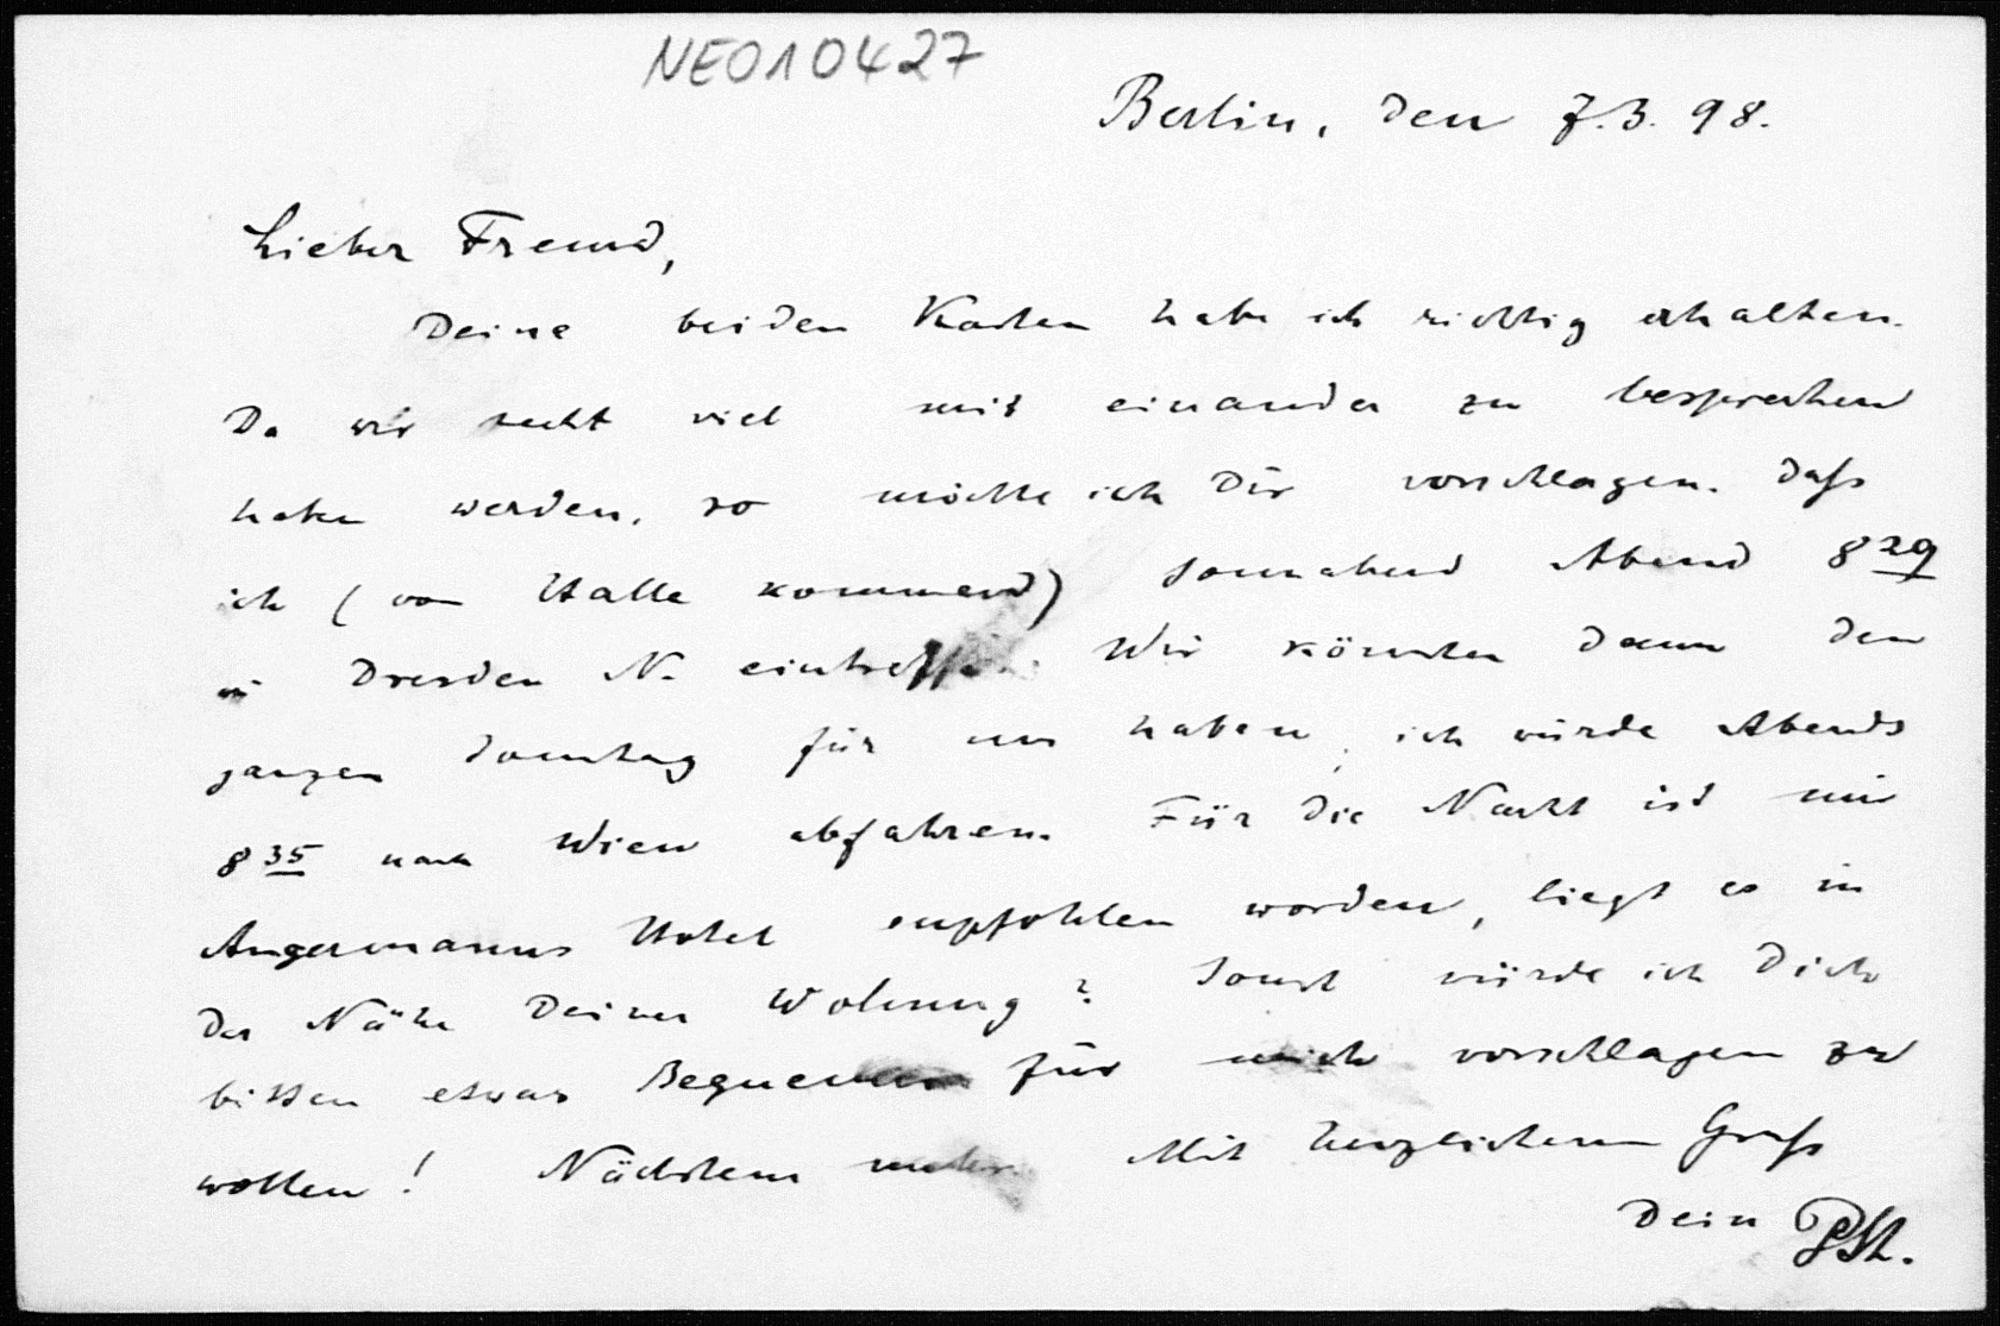 NE010427
Berlin, den 7.3.98.
Lieber Freund,
Deine beiden Karten habe ich richtig erhalten.
Da wir recht viel mit einander zu besprechen
haben werden, so möchte ich Dir vorschlagen, daß
ich (von Halle kommend) Sonnabend Abend 8 29
in Dresden N. eintreffe. Wir könnten dann den
ganzen Sonntag für uns haben, ich würde Abends
8 35 nach Wien abfahren. Für die Nacht ist mir
Angermanns Hotel empfohlen worden, liegt es in
der Nähe Deiner Wohnung? Sonst würde ich Dich
bitten etwas Bequemes für mich vorschlagen zu
wollen! Nächstens mehr. Mit herzlichem Gruß
Dein PSt.